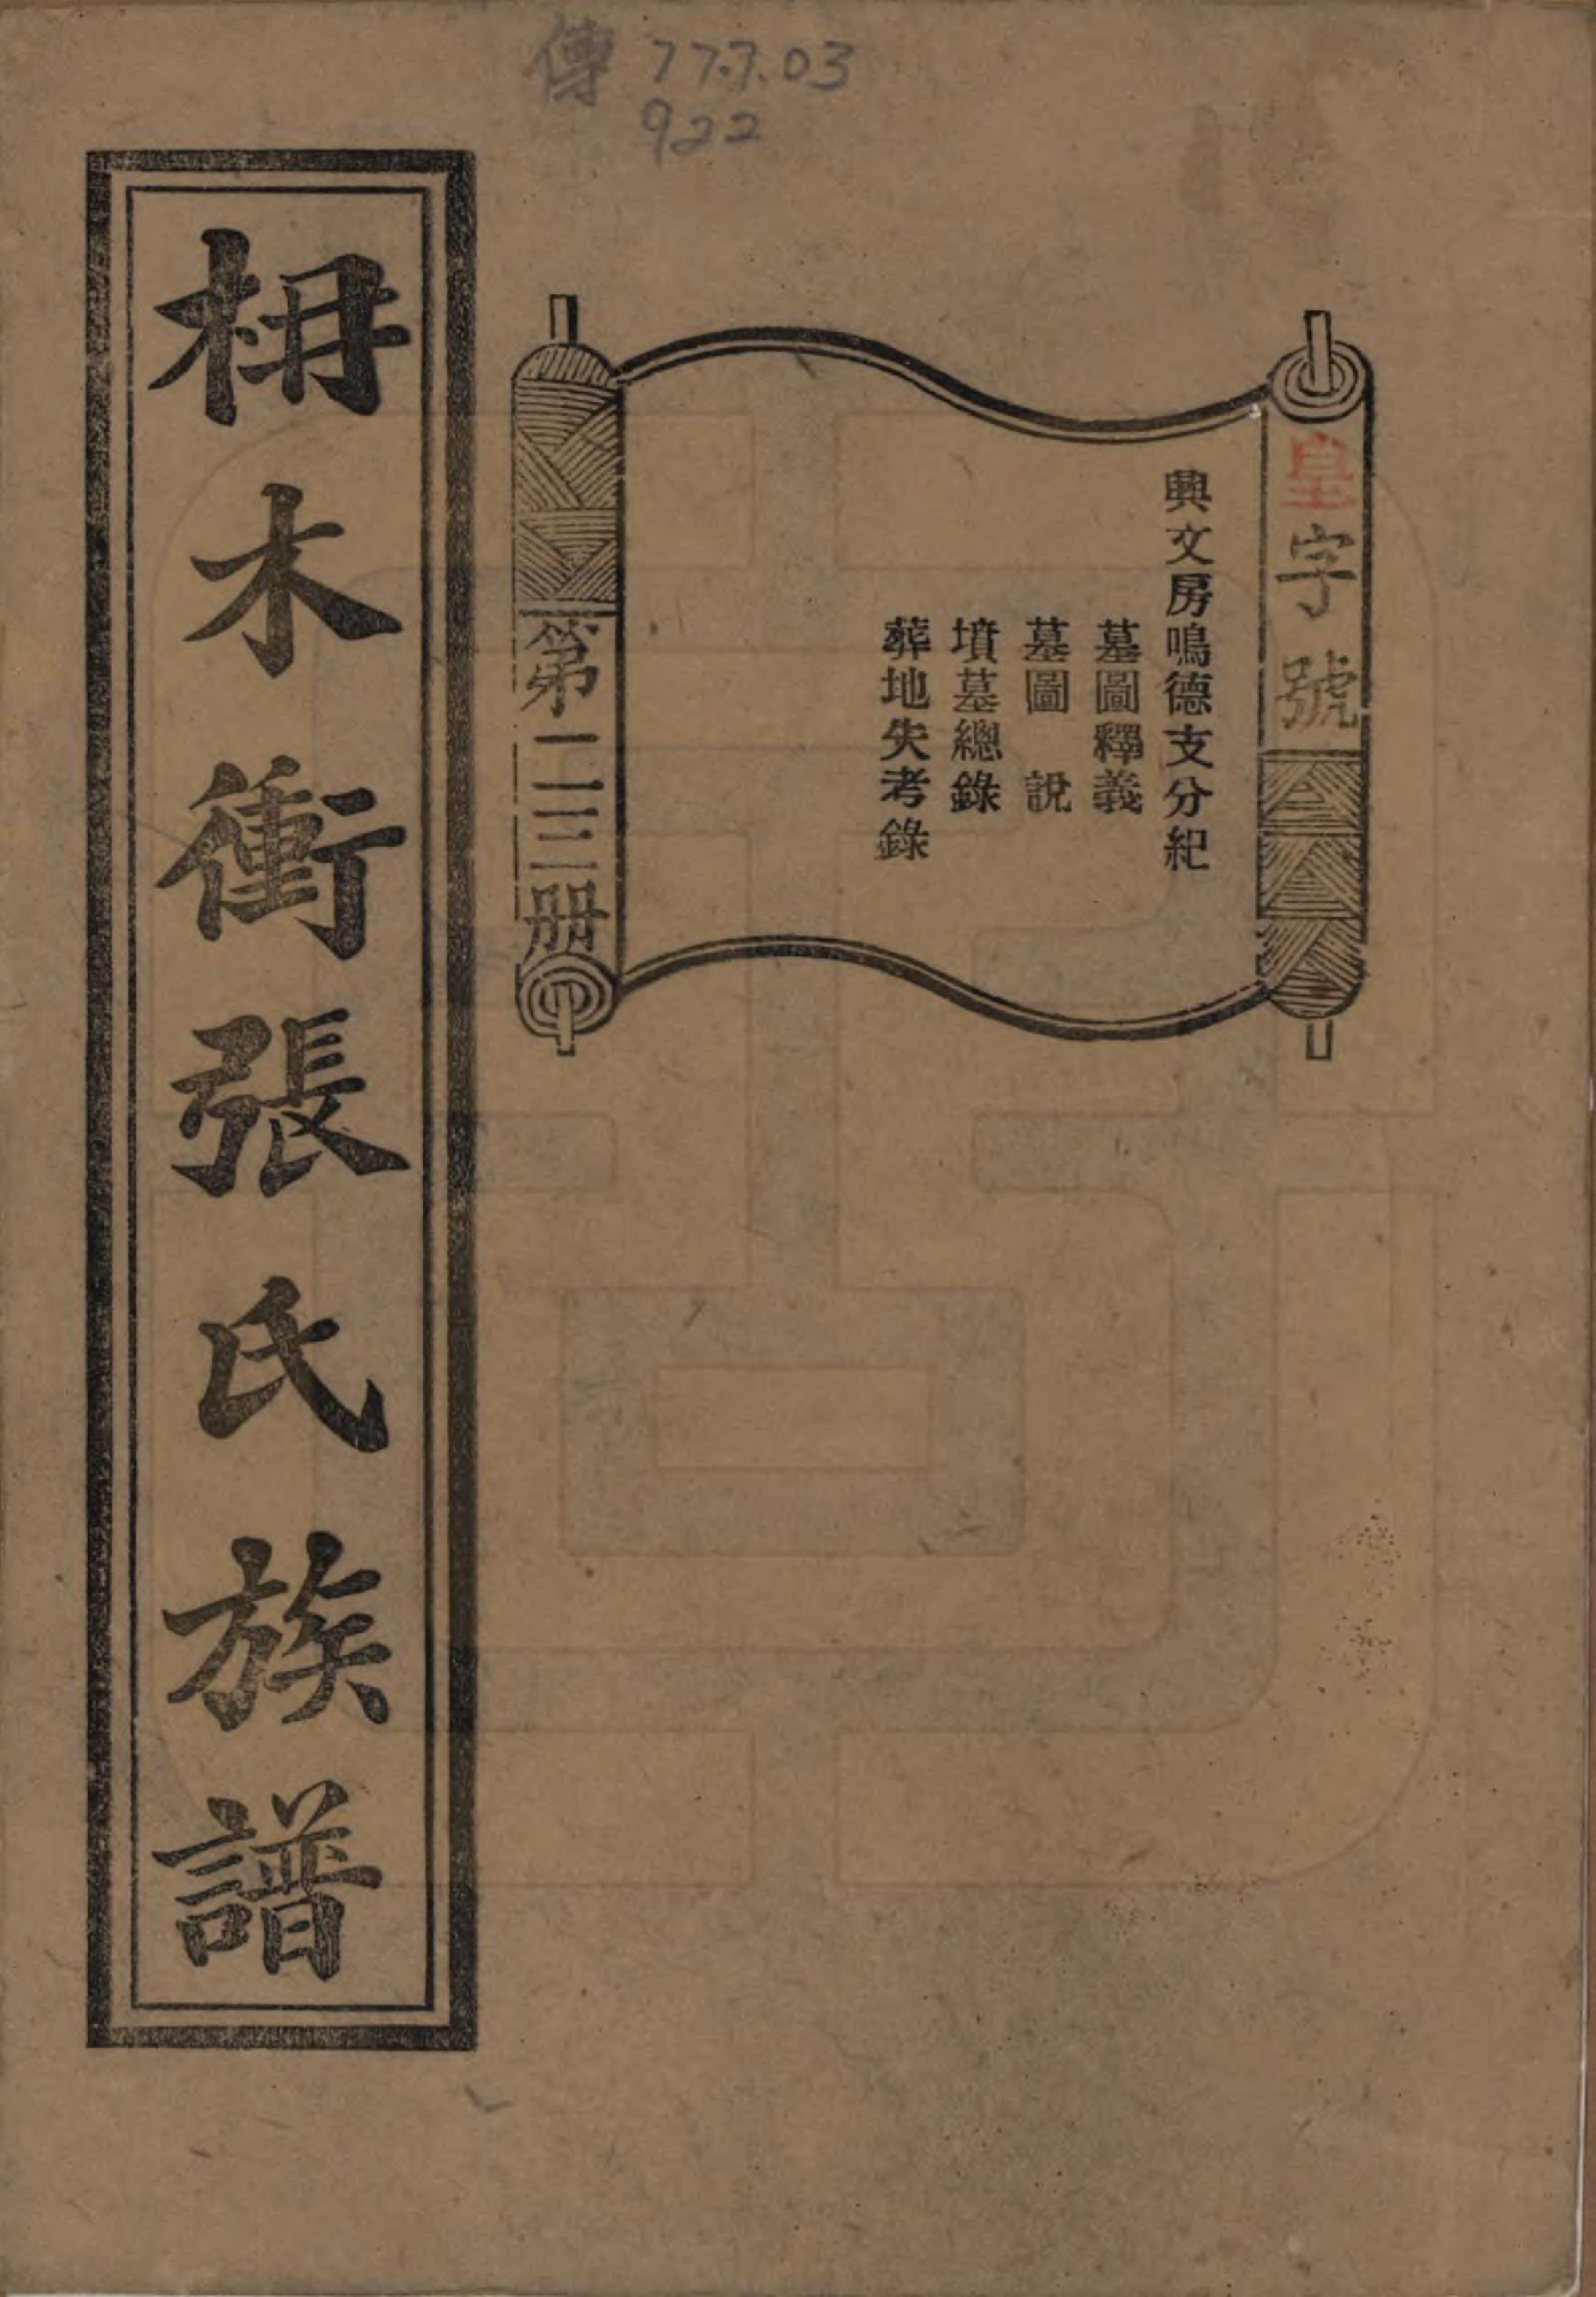 傳 77.7.03
922
皇字號
興文房鳴德支分紀
墓圖釋義
墓圖說
墳墓總錄
葬地失考錄
第二三册
柟木衝張氏族譜